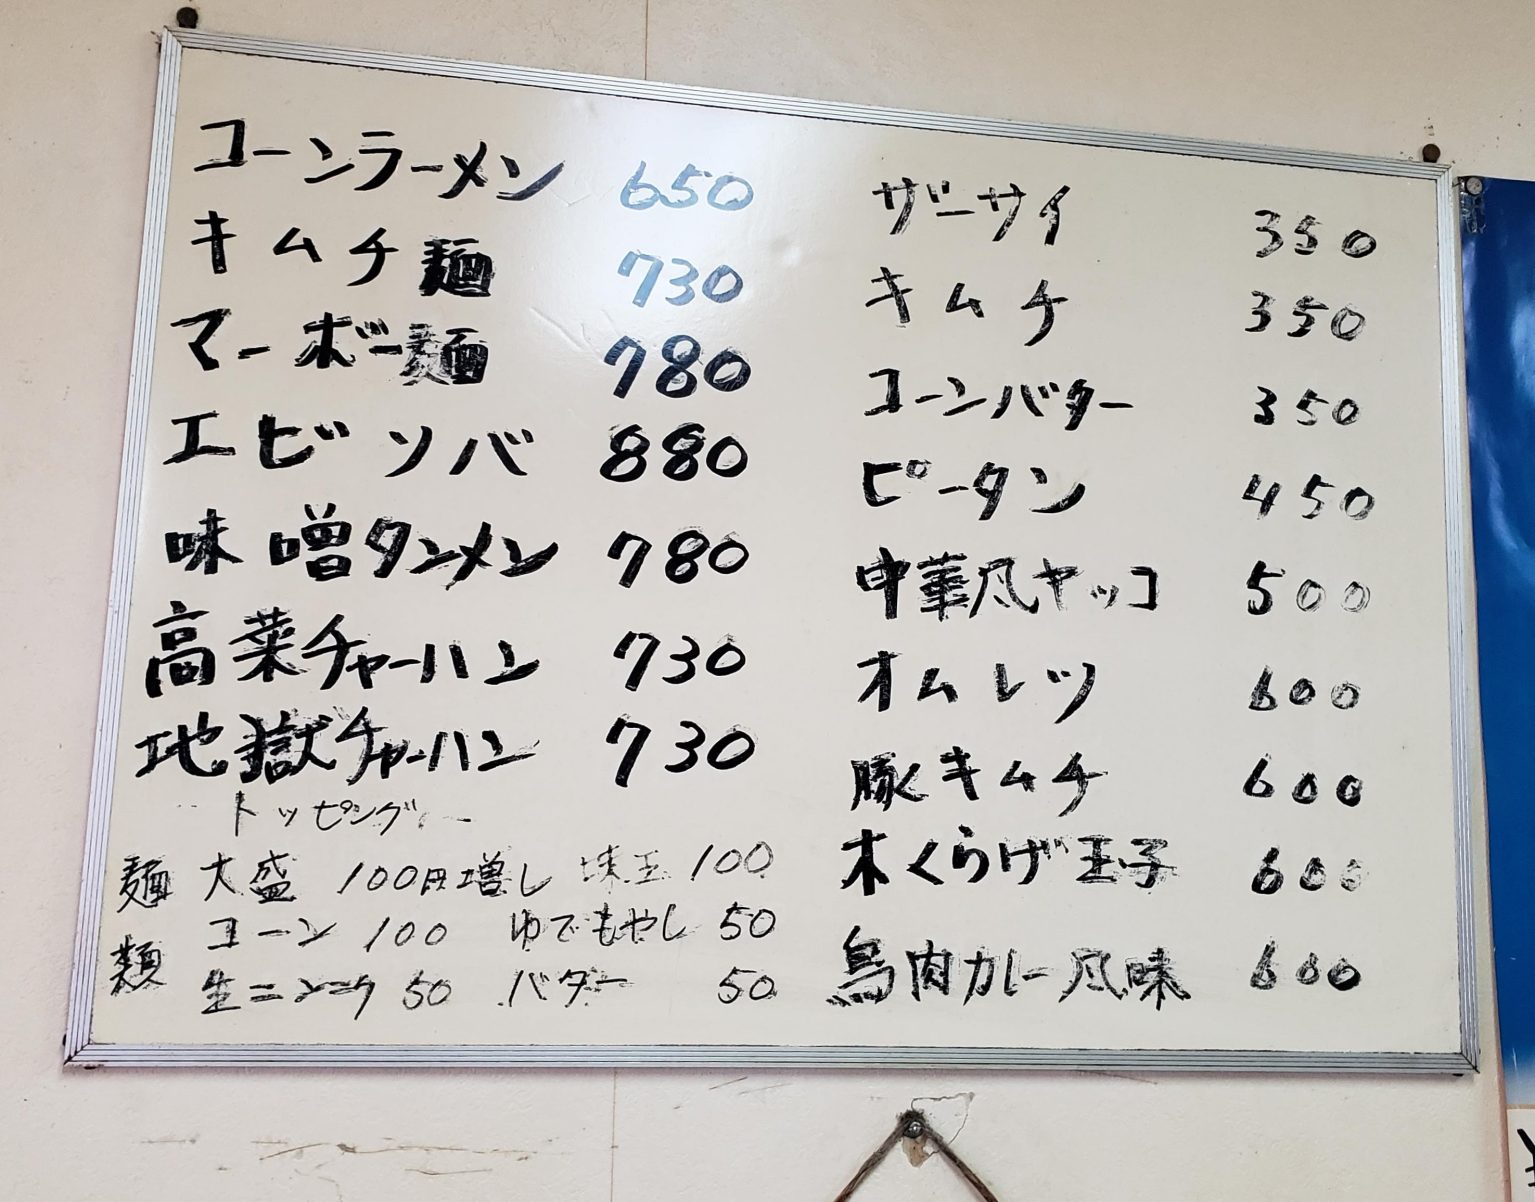 コーンラーメン 650
キムチ麺 730
マーボー麺 780
エビソバ 880
味噌タンメン 780
高菜チャーハン 730
地獄チャーハン 730
トッピング
麺類
大盛 100円増し 味玉 100
コーン 100 ゆでもやし 50
生ニンニク 50 バター 50
ザーサイ 350
キムチ 350
コーンバター 350
ピータン 450
中華風ヤッコ 500
オムレツ 600
豚キムチ 600
木くらげ玉子 600
鳥肉カレー風味 600